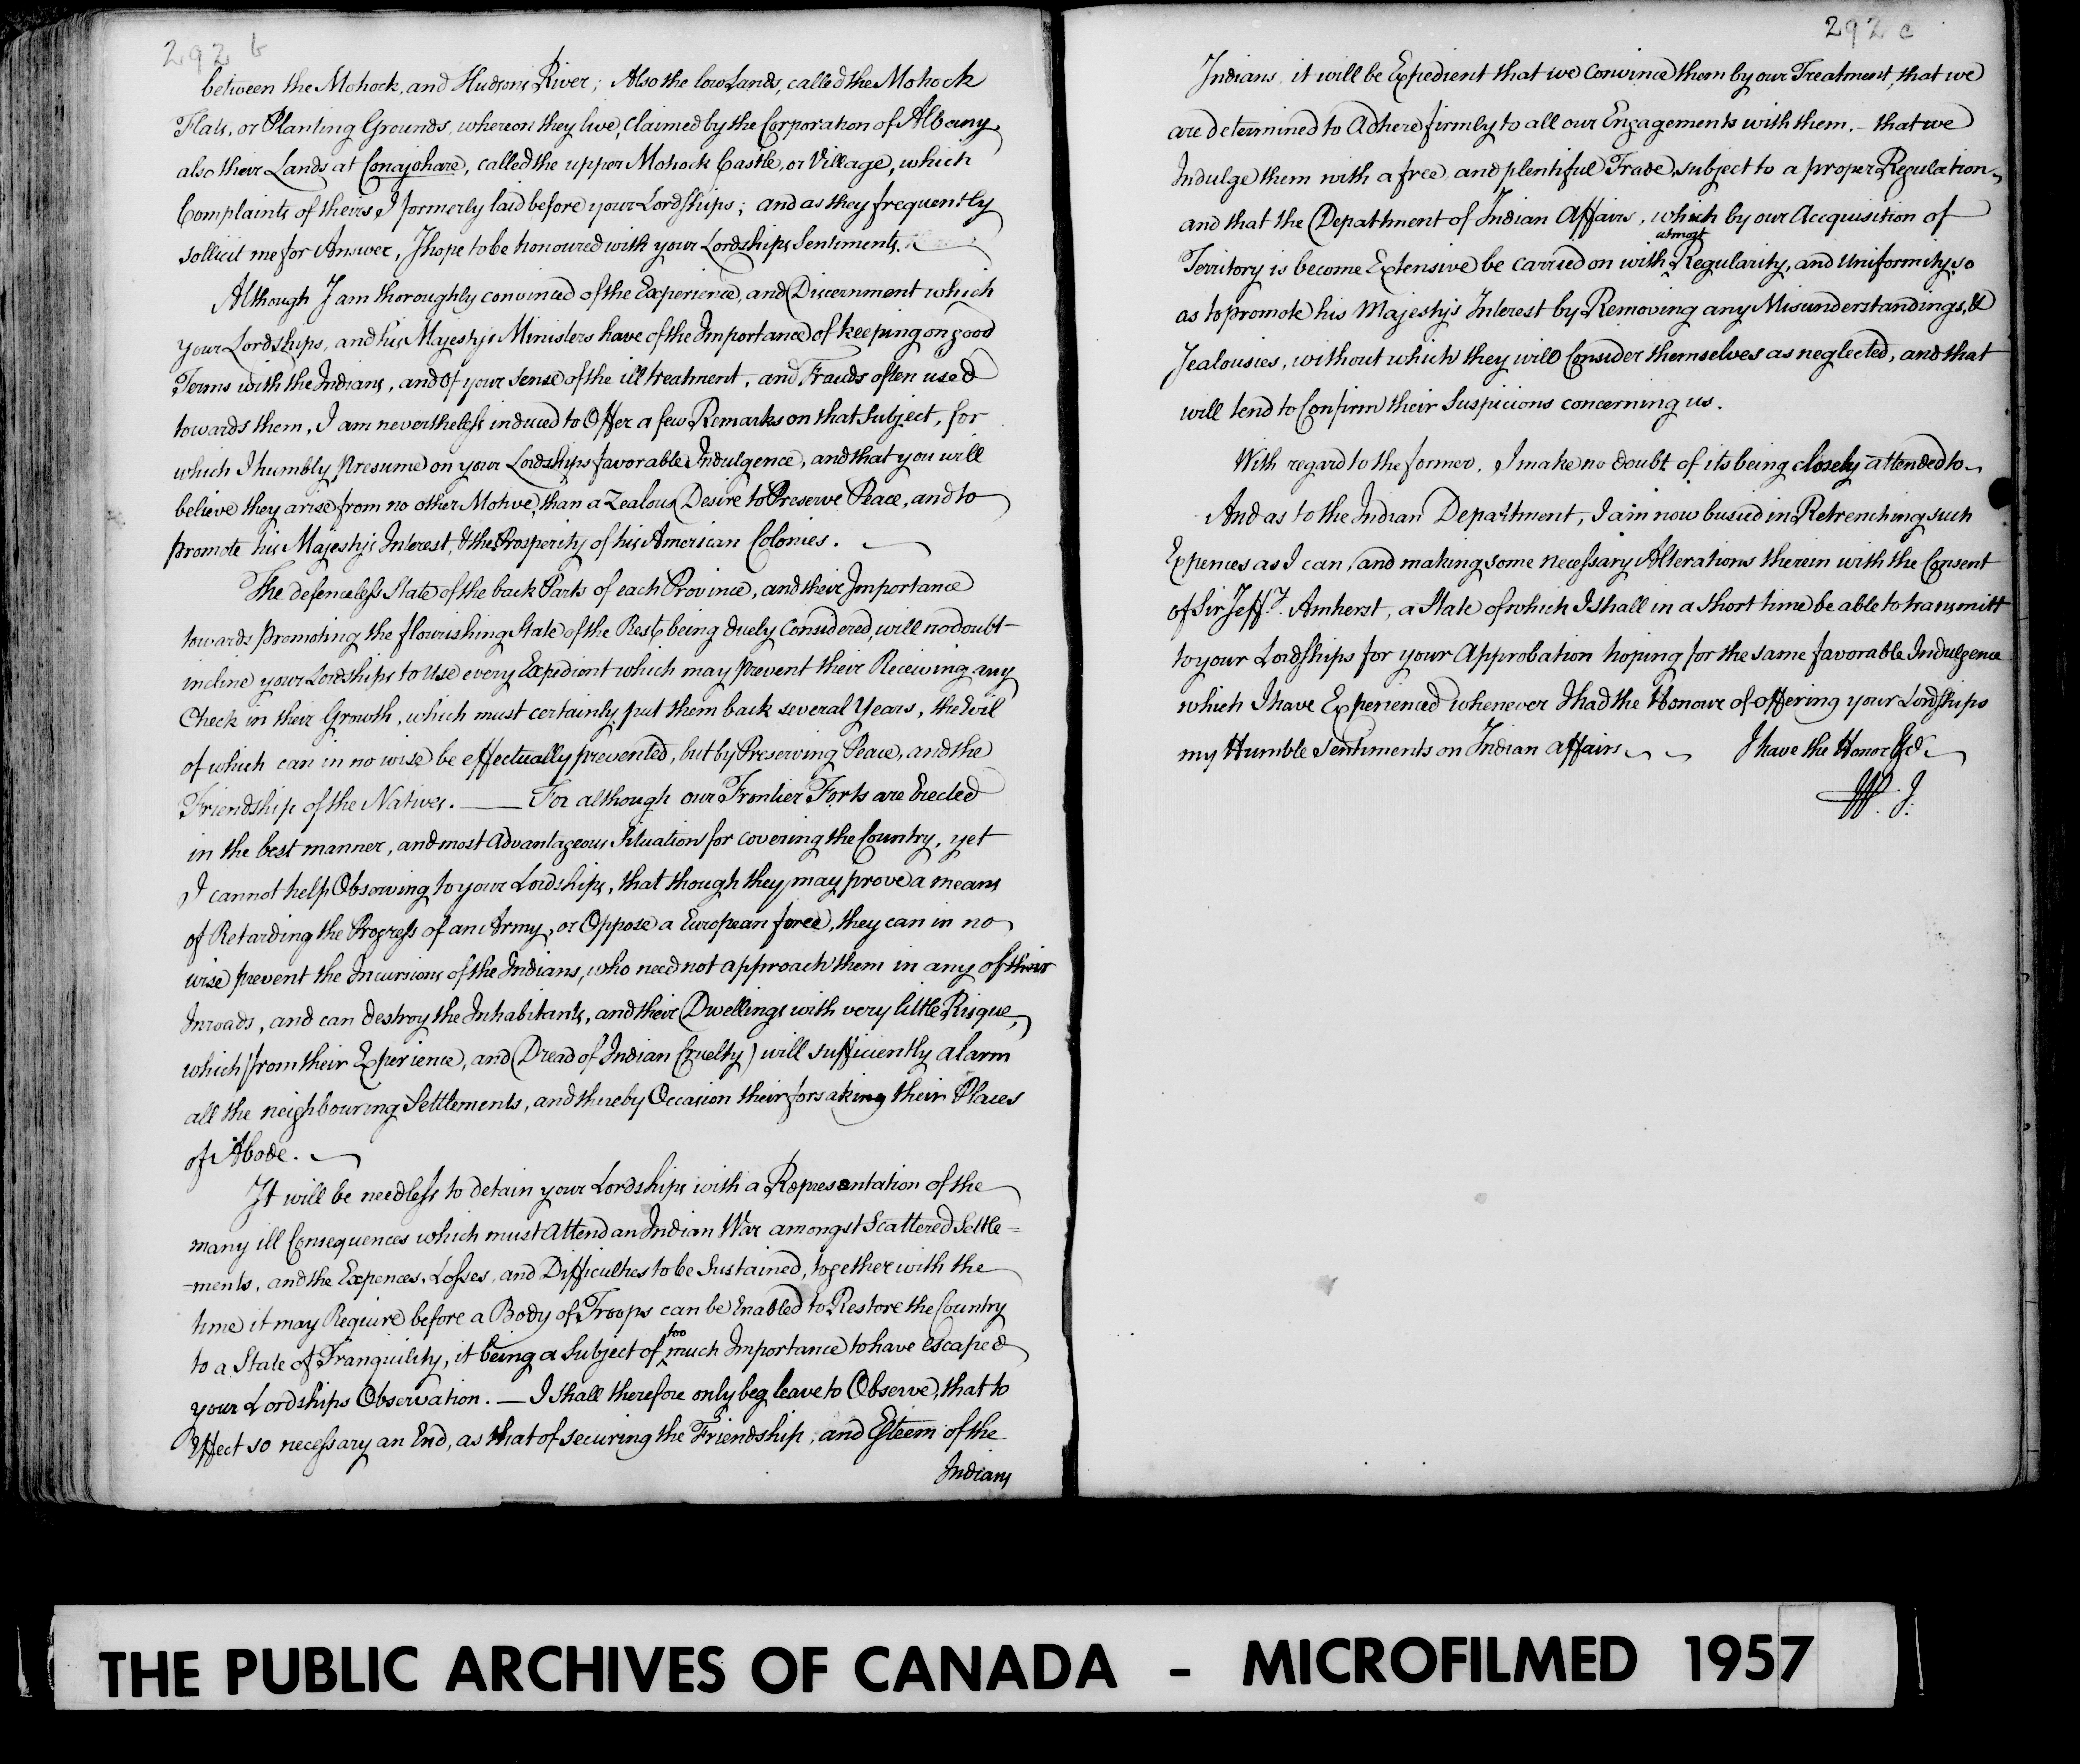 292 b
between the Mohock, and Hudsons River; Also the low Lands, called the Mohock
Flats, or Planting Grounds, whereon they live, Claimed by the Corporation of Albany,
also their Lands at Conajohare, called the upper Mohock Castle, or Village, which
Complaints of theirs I formerly laid before your Lordships; and as they frequently
sollicit me for Answer, I hope to be honoured with your Lordships Sentiments.
Although I am thoroughly convinced of the Experience, and Discernment which
your Lordships, and his Majestys Ministers have of the Importance of keeping on good
Terms with the Indians, and of your sense of the ill treatment, and Frauds often used
towards them, I am nevertheless induced to Offer a few Remarks on that Subject, for
which I humbly Presume on your Lordships favorable Indulgence, and that you will
believe they arise from no other Motive, than a Zealous Desire to Preserve Peace, and to
promote his Majestys Interest, & the Prosperity of his American Colonies.
The defenceless State of the back Parts of each Province, and their Importance
towards promoting the flourishing State of the Rest, being duely Considered, will no doubt
incline your Lordships to use every Expedient which may prevent their Receiving any
Check in their Growth, which must certainly put them back several Years, the Evil
of which can in no wise be effectually prevented, but by Preserving Peace, and the
Friendship of the Natives. — For although our Frontier Forts are Erected
in the best manner, and most Advantageous Situation for covering the Country, yet
I cannot help Observing to your Lordships, that though they may prove a means
of Retarding the Progress of an Army, or Oppose a European force, they can in no
wise prevent the Incursions of the Indians, who need not approach them in any of their
Inroads, and can destroy the Inhabitants, and their Dwellings with very little Risque,
which (from their Experience, and Dread of Indian Cruelty) will sufficiently alarm
all the neighbouring Settlements, and thereby Occasion their forsaking their Places
of Abode.
It will be needless to detain your Lordships with a Representation of the
many ill Consequences which must Attend an Indian War amongst Scattered Settle=
=ments, and the Expences, Losses, and Difficulties to be Sustained, together with the
time it may Require before a Body of Troops can be Enabled to Restore the Country
to a State of Tranquility, it being a Subject of too much Importance to have escaped
your Lordships Observation. — I shall therefore only beg leave to Observe, that to
Effect so necessary an End, as that of securing the Friendship, and Esteem of the
Indians
292 c
Indians, it will be Expedient that we Convince them by our Treatment, that we
are determined to Adhere firmly to all our Engagements with them, - that we
Indulge them with a free, and plentiful Trade, subject to a proper Regulation,
and that the Depattment of Indian Affairs, which by our Accquisition of
Territory is become Extensive be carried on with utmost Regularity, and Uniformity, so
as to promote his Majestys Interest by Removing any Misunderstandings, &
Jealousies, without which they will Consider themselves as neglected, and that
will tend to Confirm their Suspicions concerning us.
With regard to the former, I make no doubt of its being closely attended to,
And as to the Indian Department, I am now busied in Retrenching such
Expences as I can, and making some necessary Alterations therein with the Consent
of Sir Jeff.y Amherst, a State of which I shall in a short time be able to transmitt
to your Lordships for your Approbation hoping for the same favorable Indulgence
which I have Experienced whenever I had the Honour of offering your Lordships
my Humble Sentiments on Indian affairs I have the Honor &ca.
W. J.
THE PUBLIC ARCHIVES OF CANADA - MICROFILMED 1957